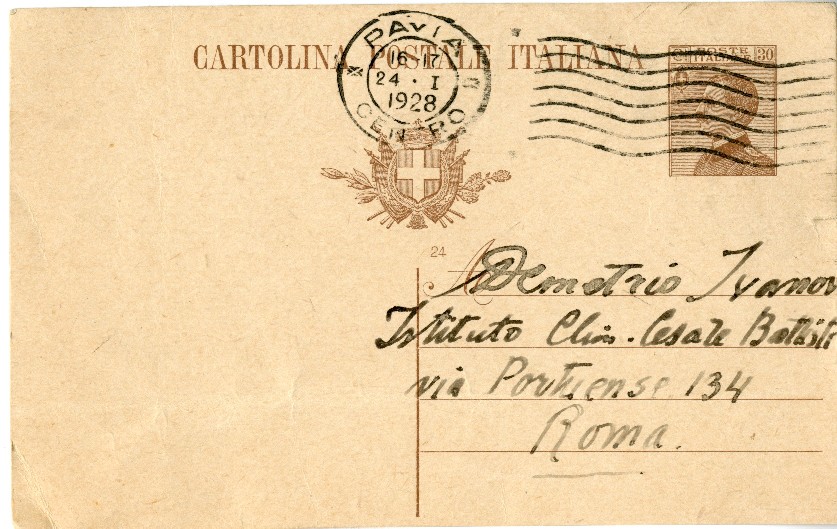 CARTOLINA POSTALE ITALIANA
PAVIA
16-17
24 · I
1928
CENTRO
POSTE
ITALIANE
30
24
A
Demetrio Ivanov
Istituto Clin. Cesare Battisti
via Portuense 134
Roma.